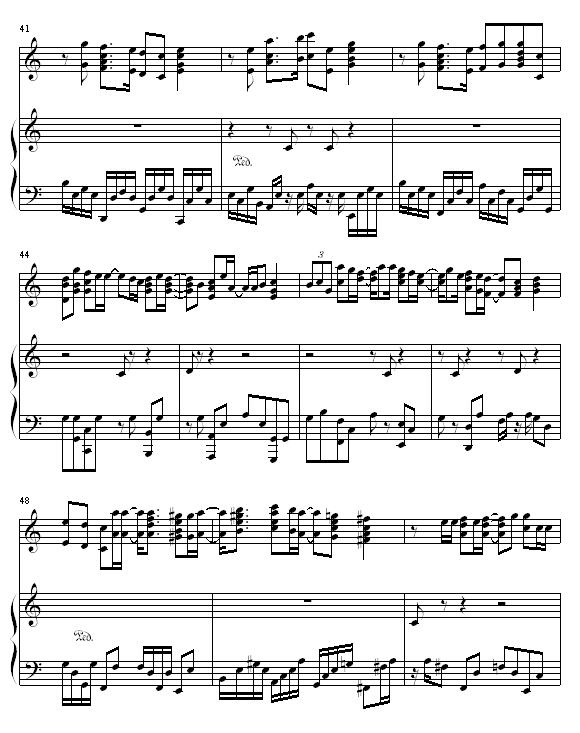 41
Ped.
44
3
48
Ped.